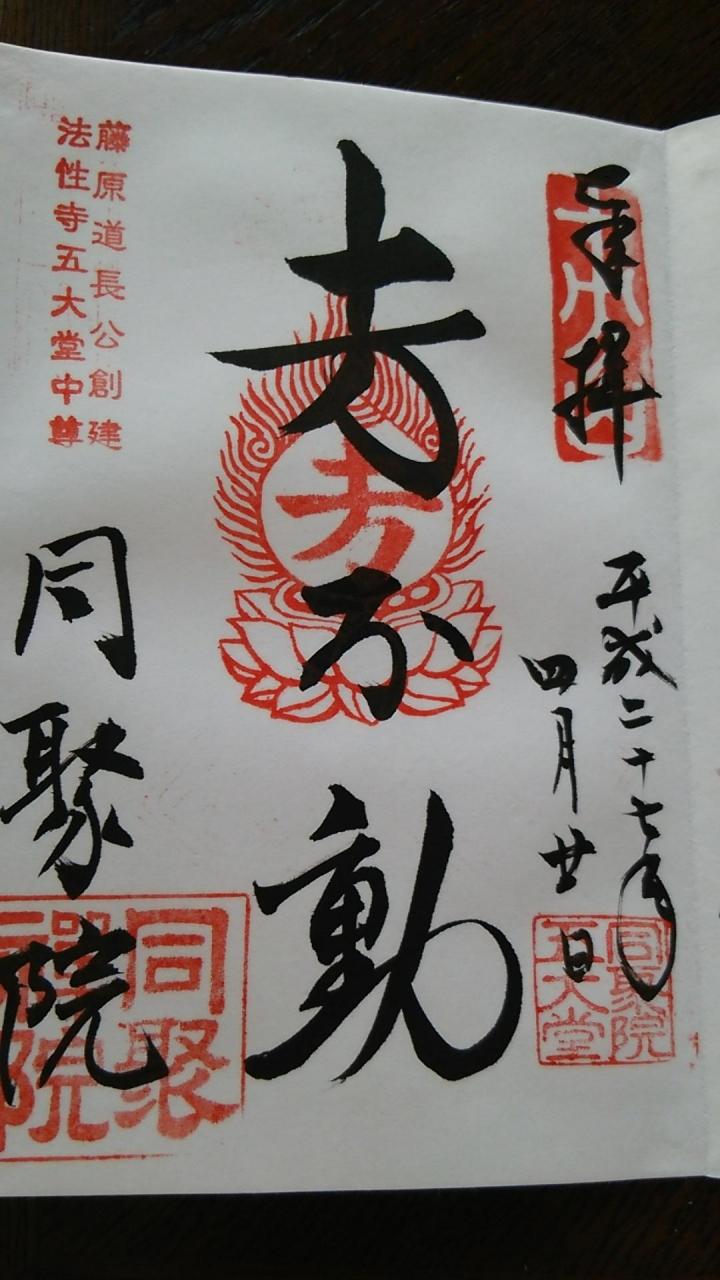 奉拝
平成二十七年
四月廿日
同聚院
五大堂
十万不動
十万
藤原道長公創建
法性寺五大堂中尊
同聚院
同聚
院